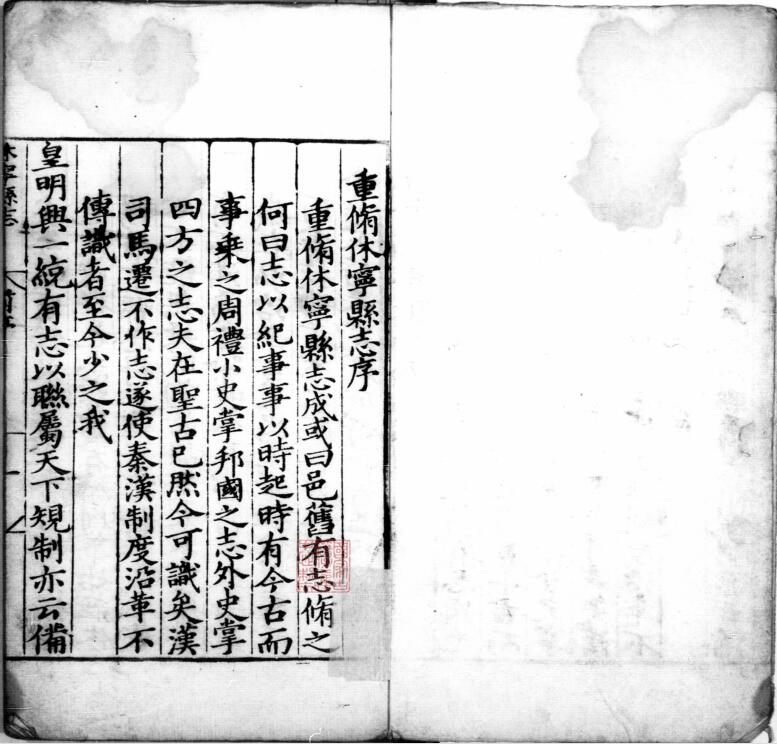 重脩休寧縣志序
重脩休寧縣志成或曰邑舊有志脩之
何曰志以紀事事以時起時有今古而
事乗之周禮小史掌邦國之志外史掌
四方之志夫在聖古已然今可識矣漢
司馬遷不作志遂使秦漢制度沿革不
傳識者至今少之我
皇明興一統有志以聮屬天下規制亦云備
休寧縣志